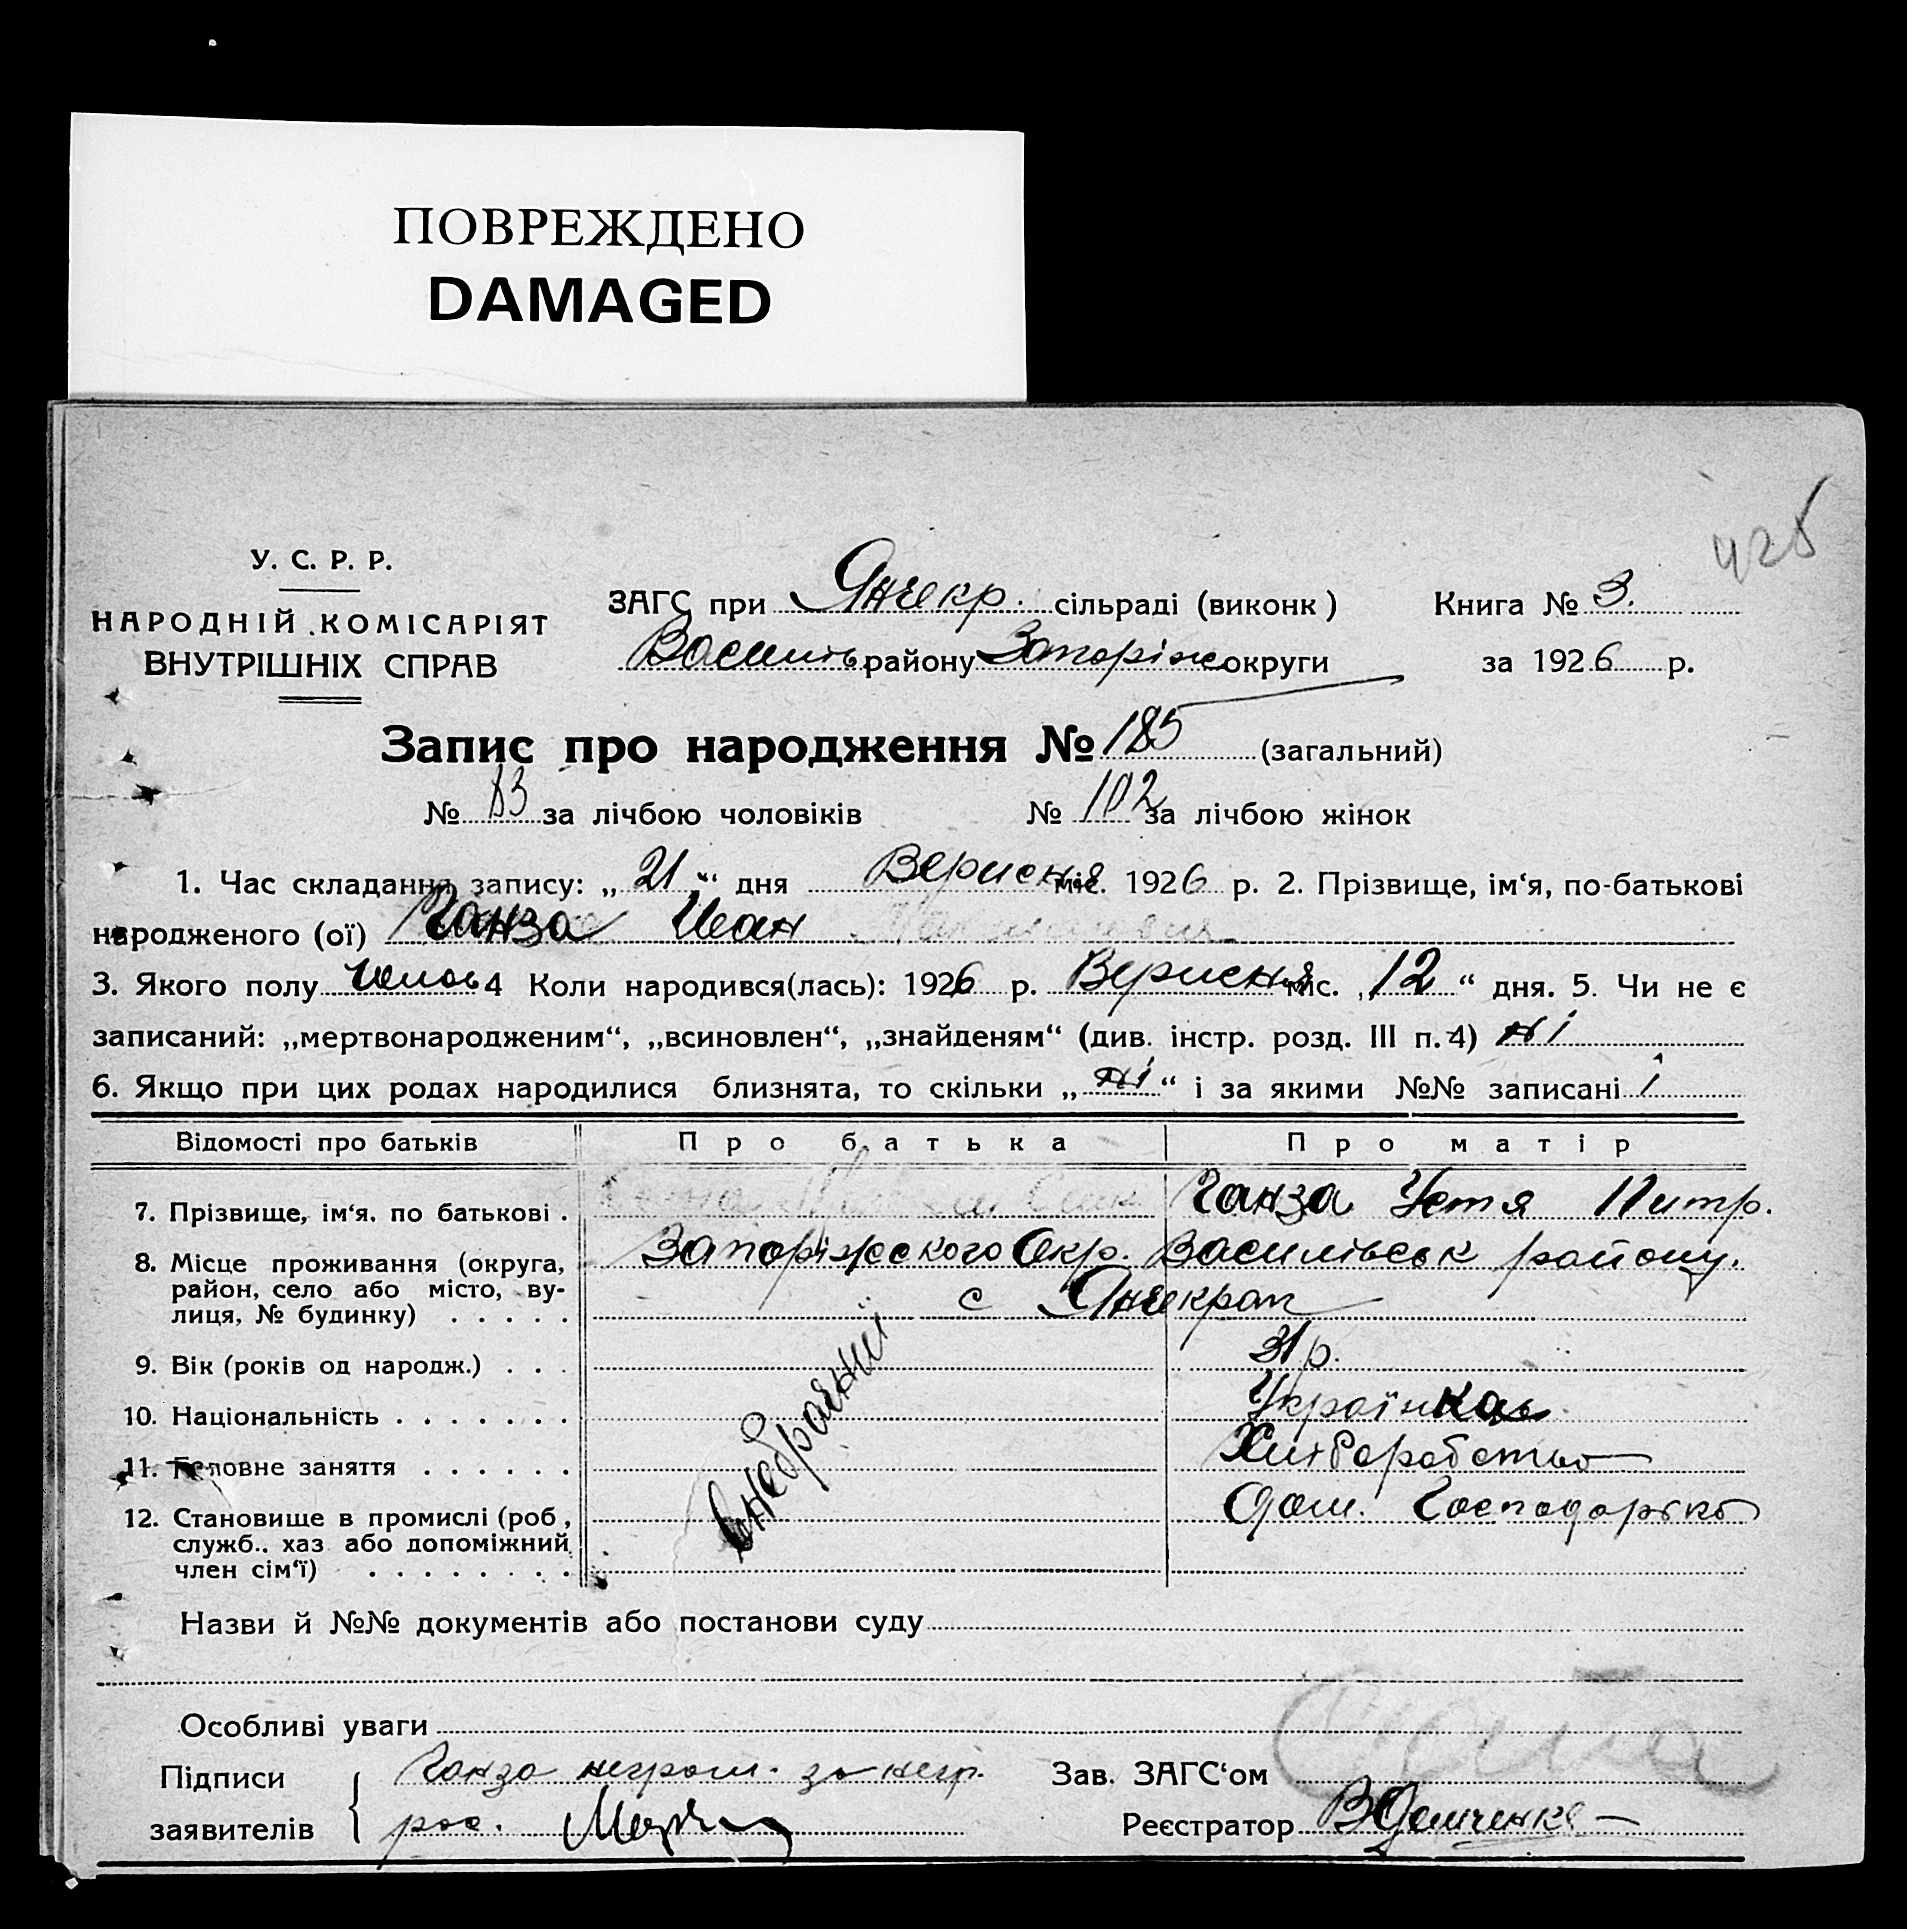 ПОВРЕЖДЕНО
DAMAGED
425
У. С. Р. Р.
НАРОДНІЙ КОМІСАРІЯТ
ВНУТРІШНІХ СПРАВ
ЗАГС при Янчекр. сільраді (виконк)
Василів. району Запоріж округи
Книга № 3.
за 1926 р.
Запис про народження № 185 (загальний)
№ 83 за лічбою чоловіків № 102 за лічбою жінок
1. Час складання запису: „21“ дня Верисня міс. 1926 р. 2. Прізвище, ім‘я, по-батькові
народженого (ої) Ганза Иван
3. Якого полу 4 Коли народився(лась): 1926 р. Верисня міс. „12“ дня. 5. Чи не є
записаний: „мертвонародженим“, „всиновлен“, „знайденям“ (див. інстр. розд. III п. 4) ні
6. Якщо при цих родах народилися близнята, то скільки „ні“ і за якими №№ записані і
Відомості про батьків Про батька Про матір
7. Прізвище, ім‘я. по батькові . Ганза Устя Питр.
8. Місце проживання (округа, Запоріжського Окр. Василівськ району.
район, село або місто, ву- с Янчекрак
лиця, № будинку) . . . . .
9. Вік (років од народж.) . . . 31 р.
10. Національність . . . . . . . Українка
11. Головне заняття . . . . . . Хліборобство
12. Становище в промислі (роб, Дом. Господарка
служб.. хаз або допоміжний
член сім‘ї) . . . . . . . .
внебрачний
Назви й №№ документів або постанови суду
Особливі уваги
Підписи Ганза неграм. за негр.
заявителів рос.
Зав. ЗАГС‘ом
Реєстратор В Демченко